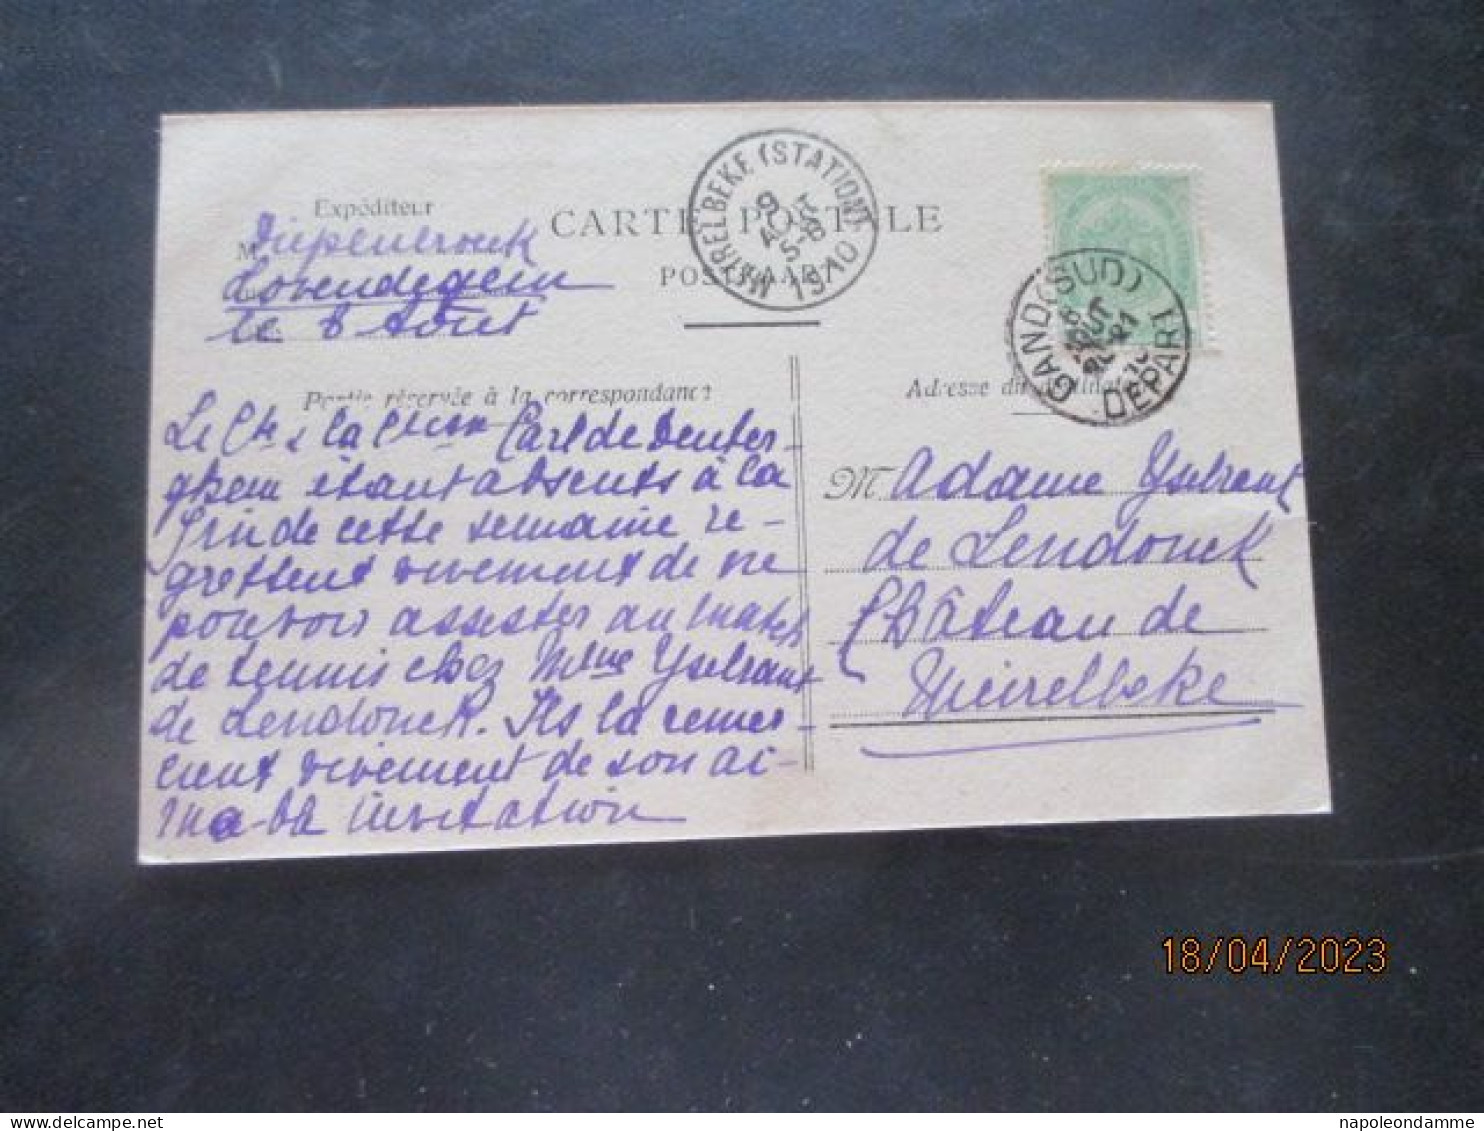 Expéditeur
CARTE POSTALE
M Diepenbrouck
Lovendegem
le 8 Aout
MEIRELBEKE (STATION)
9
AOUT
5-6
1910
GAND (SUD)
AOUT
21
DEPART
Partie réservée à la correspondance
Adresse du
Le Cte & la Ctesse Carl de Denter-
ghem étant absents à la
fin de cette semaine re-
grettent vivement de ne
pouvoir assister au match
de tennis chez Mme Yselrant
de Lendonck. Ils la remer-
cient vivement de son ai-
ma-ble invitation
Madame Yselrant
de Lendonck
Château de
Meirelbeke
18/04/2023
napoleondamme